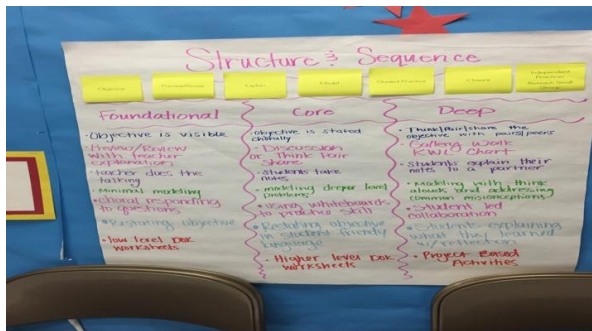 Structure & Sequence
Objective
Preview/Review
Explain
Model
Guided Practice
Closure
Independent
Practice/
Small
Group
Foundational
• Objective is visible
Preview/Review
with teacher
explanation
• teacher does the
talking
• Minimal modeling
• choral responding
to questions
• Restating objective
• low level DOK
worksheets
Core
• Objective is stated
chorally
• Discussion
or Think Pair
Share
• Students take
notes
• modeling deeper level
problems
• using whiteboards
to practice skill
• Restating objective
in student friendly
language
• Higher level DOK
worksheets
Deep
• Think/Pair/share the
objective with pairs/peers
• Gallery Walk
KWL Chart
• Students explain their
notes to a partner
• Modeling with think
alouds and addressing
common misconceptions
• Student led
collaboration
• Students explaining
what they learned
w/reflection
• Project Based
Activities